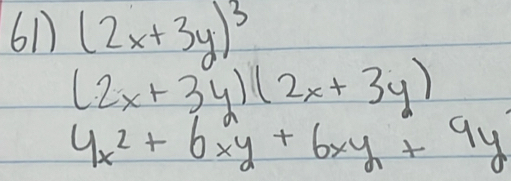 61) (2x+3y)³
(2x+3y)(2x+3y)
4x² + 6xy + 6xy + 9y